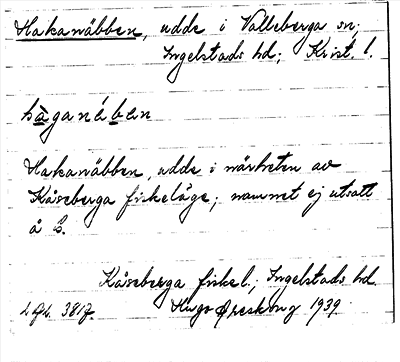 Hakanäbben, udde i Valleberga sn;
Ingelstads hd; Krist. l.
håganében
Hakanäbben, udde i närheten av
Kåseberga fiskeläge; namnet ej utsatt
å
Kåseberga fiskel.; Ingelstads hd.
Hugo Areskoug 1939.